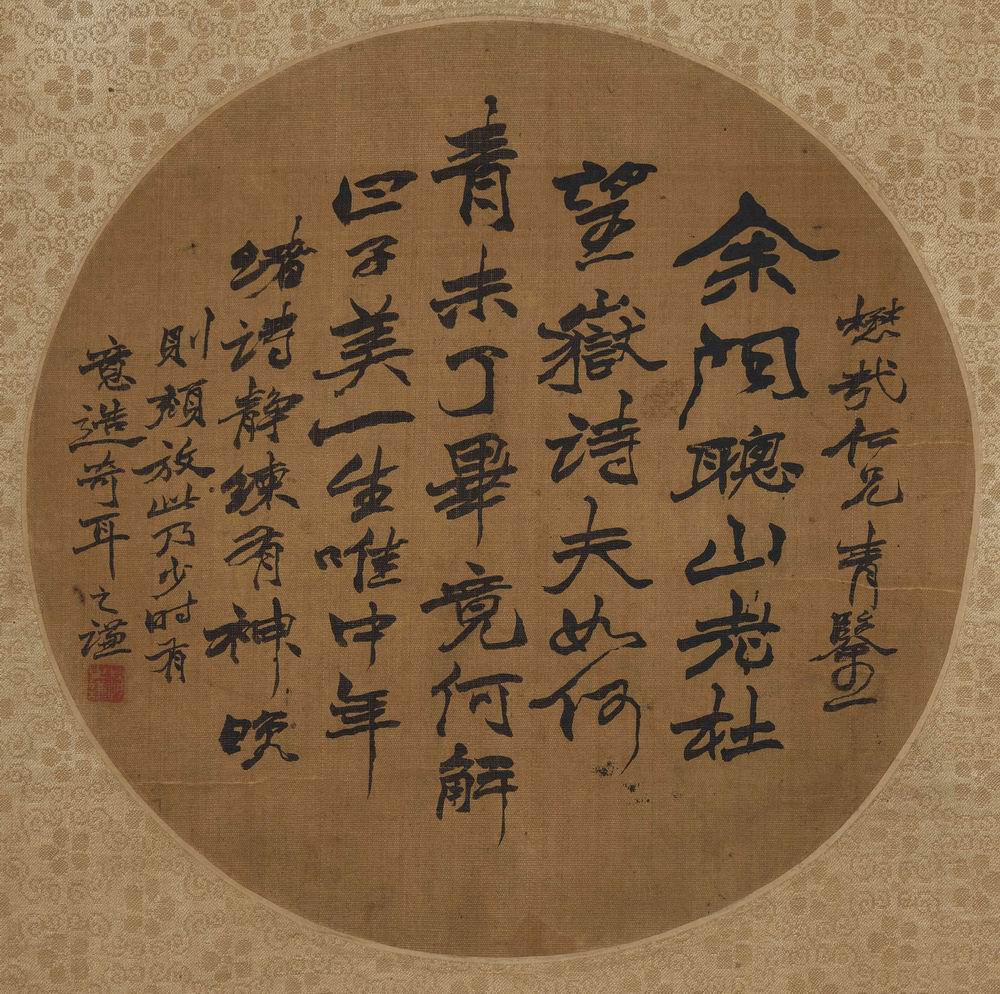 懋哉仁兄青鑒
余問聰山老杜
望嶽詩夫如何
青未了畢竟何解
曰子美一生唯中年
諸詩靜練有神晚
則頹放此乃少時有
意造奇耳之謙